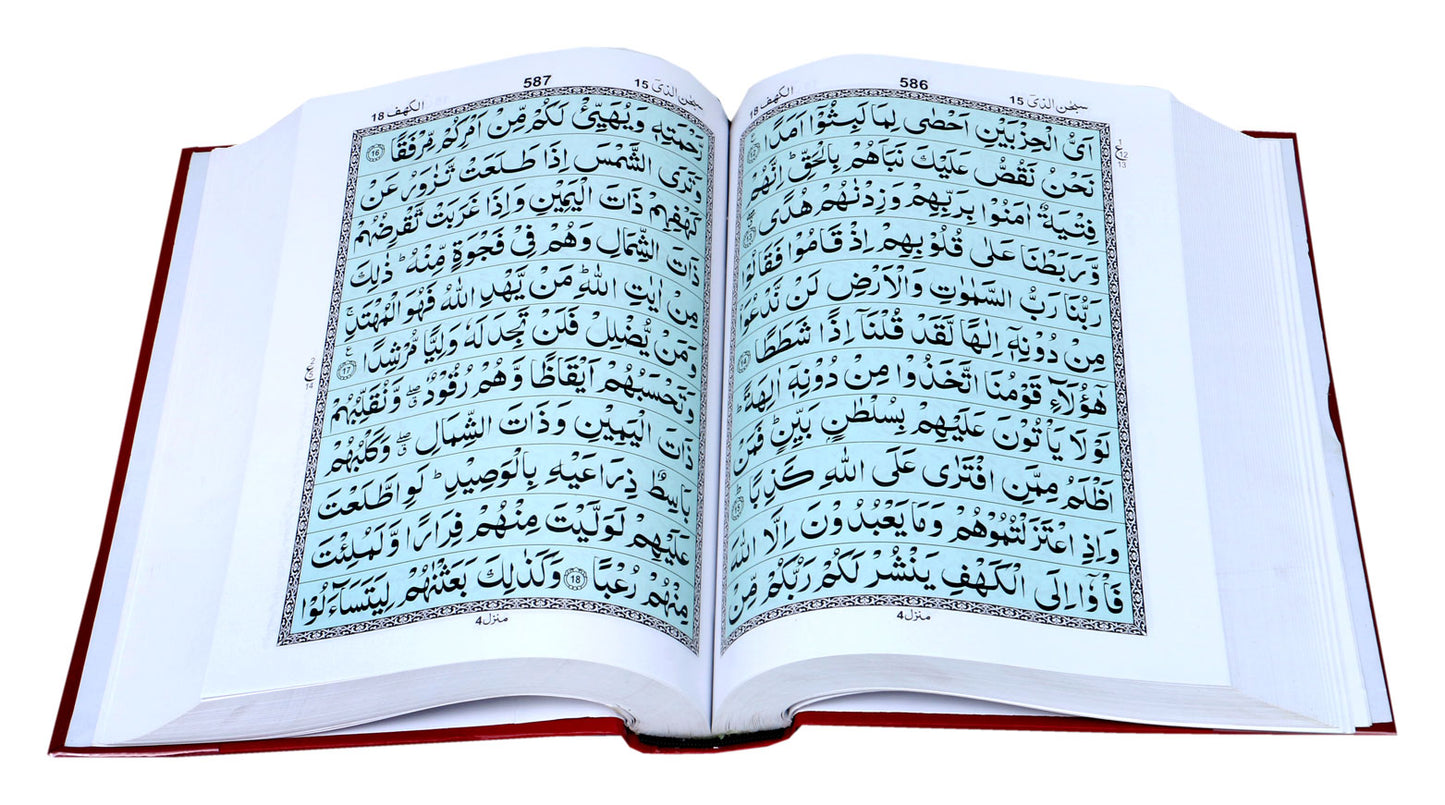 سبحٰن الذیٓ 15
586
الكهف 18
اَیُّ الْحِزْبَیْنِ اَحْصٰی لِمَا لَبِثُوْۤا اَمَدًا 12
ع 12 13
نَحْنُ نَقُصُّ عَلَیْكَ نَبَاَهُمْ بِالْحَقِّ ؕ اِنَّهُمْ
فِتْیَةٌ اٰمَنُوْا بِرَبِّهِمْ وَزِدْنٰهُمْ هُدًی 13
وَّرَبَطْنَا عَلٰی قُلُوْبِهِمْ اِذْ قَامُوْا فَقَالُوْا
رَبُّنَا رَبُّ السَّمٰوٰتِ وَالْاَرْضِ لَنْ نَّدْعُوَا۠
مِنْ دُوْنِهٖۤ اِلٰهًا لَّقَدْ قُلْنَاۤ اِذًا شَطَطًا 14
هٰۤؤُلَآءِ قَوْمُنَا اتَّخَذُوْا مِنْ دُوْنِهٖۤ اٰلِهَةً ؕ
لَوْ لَا یَاْتُوْنَ عَلَیْهِمْ بِسُلْطٰنٍۭ بَیِّنٍ ؕ فَمَنْ
اَظْلَمُ مِمَّنِ افْتَرٰی عَلَی اللّٰهِ كَذِبًا 15
وَاِذِ اعْتَزَلْتُمُوْهُمْ وَمَا یَعْبُدُوْنَ اِلَّا اللّٰهَ
فَاْوٗۤا اِلَی الْكَهْفِ یَنْشُرْ لَكُمْ رَبُّكُمْ مِّنْ
منزل 4
سبحٰن الذیٓ 15
587
الكهف 18
رَّحْمَتِهٖ وَیُهَیِّئْ لَكُمْ مِّنْ اَمْرِكُمْ مِّرْفَقًا 16
وَتَرَی الشَّمْسَ اِذَا طَلَعَتْ تَّزٰوَرُ عَنْ
كَهْفِهِمْ ذَاتَ الْیَمِیْنِ وَاِذَا غَرَبَتْ تَّقْرِضُهُمْ
ذَاتَ الشِّمَالِ وَهُمْ فِیْ فَجْوَةٍ مِّنْهُ ؕ ذٰلِكَ
مِنْ اٰیٰتِ اللّٰهِ ؕ مَنْ یَّهْدِ اللّٰهُ فَهُوَ الْمُهْتَدِ ۚ
وَمَنْ یُّضْلِلْ فَلَنْ تَجِدَ لَهٗ وَلِیًّا مُّرْشِدًا 17
ع 14
وَتَحْسَبُهُمْ اَیْقَاظًا وَّهُمْ رُقُوْدٌ ۖ وَّنُقَلِّبُهُمْ
ذَاتَ الْیَمِیْنِ وَذَاتَ الشِّمَالِ ۖ وَكَلْبُهُمْ
بَاسِطٌ ذِرَاعَیْهِ بِالْوَصِیْدِ ؕ لَوِ اطَّلَعْتَ
عَلَیْهِمْ لَوَلَّیْتَ مِنْهُمْ فِرَارًا وَّلَمُلِئْتَ
مِنْهُمْ رُعْبًا 18 وَكَذٰلِكَ بَعَثْنٰهُمْ لِیَتَسَآءَلُوْا
منزل 4